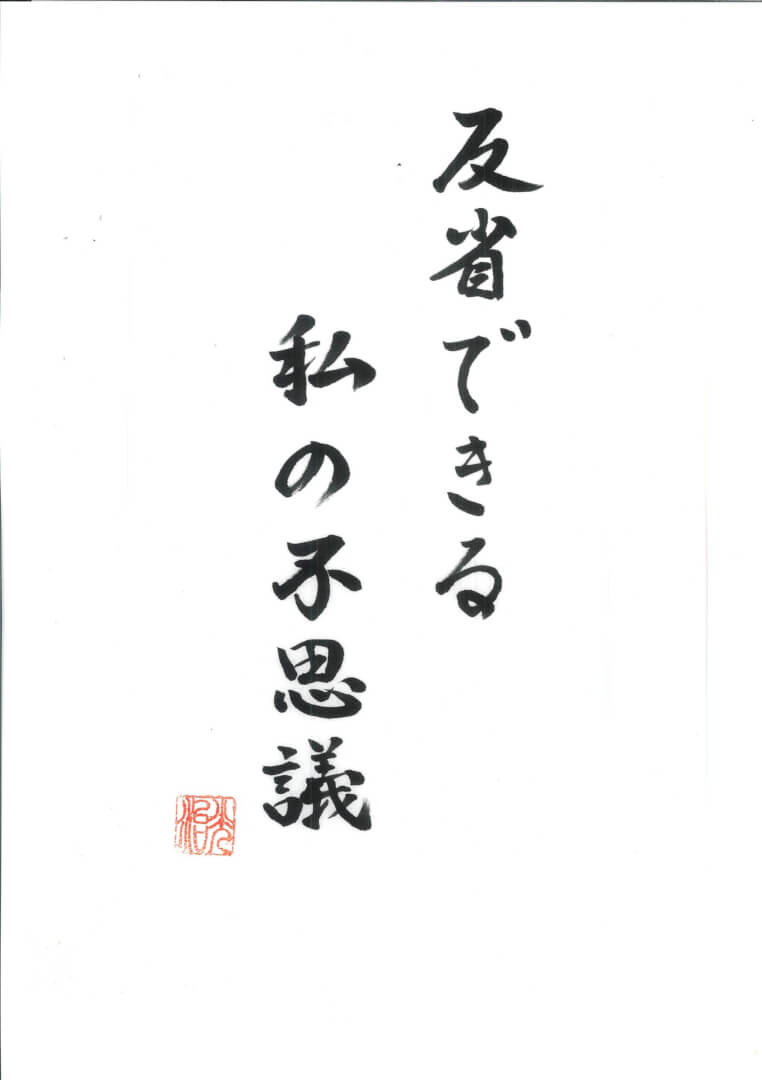 反省できる
私の不思議